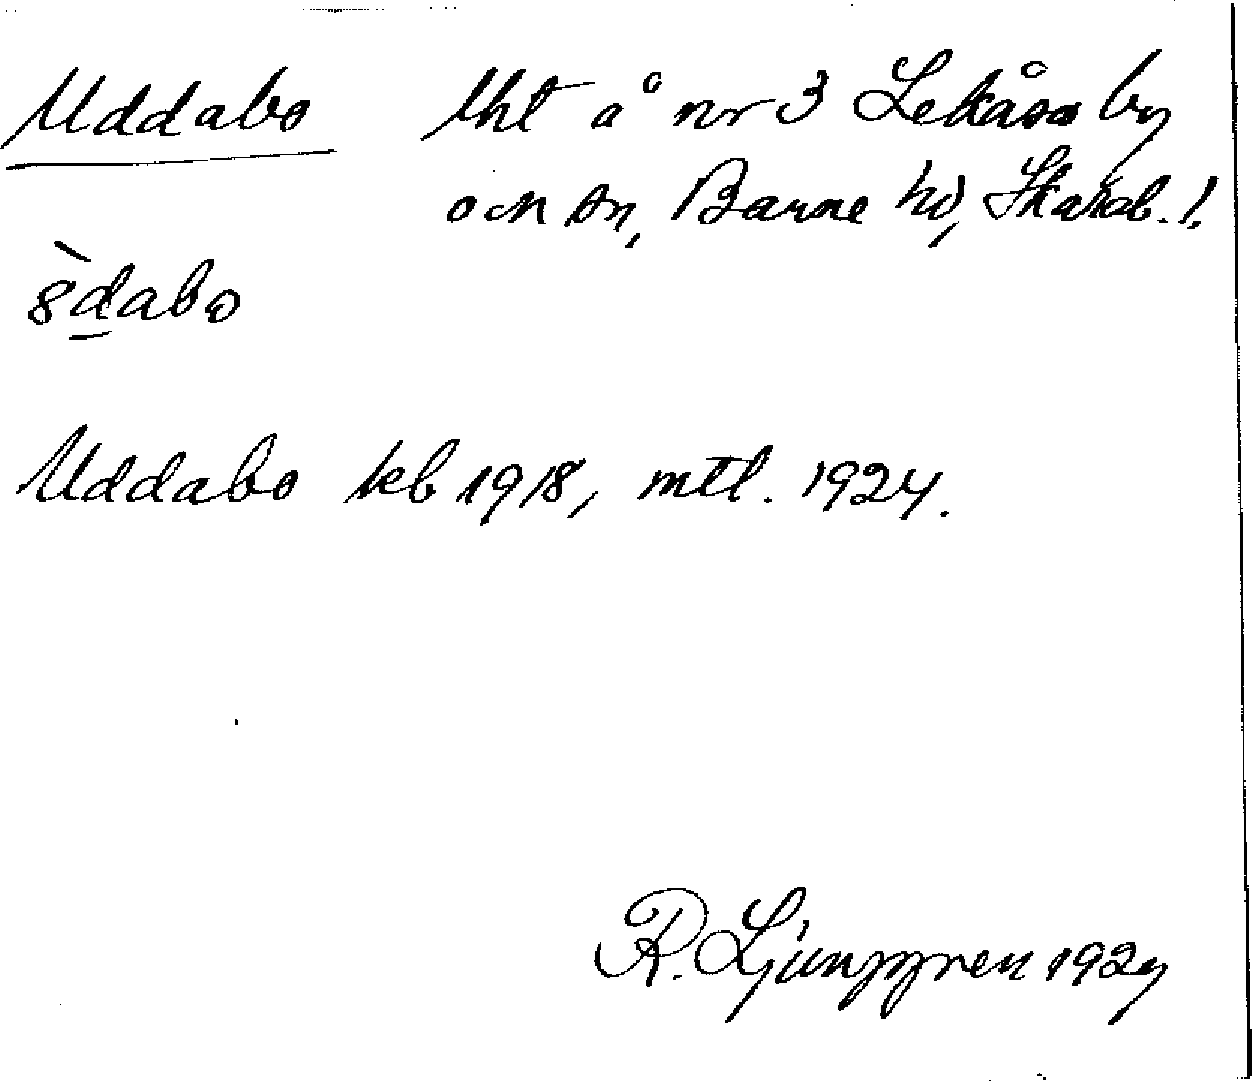 Uddabo lht å nr 3 Lekåsa by
och sn, Barne hd, Skarab. l.
8̀d̲abo
Uddabo kb 1918, mtl. 1924.
R. Ljunggren 1927